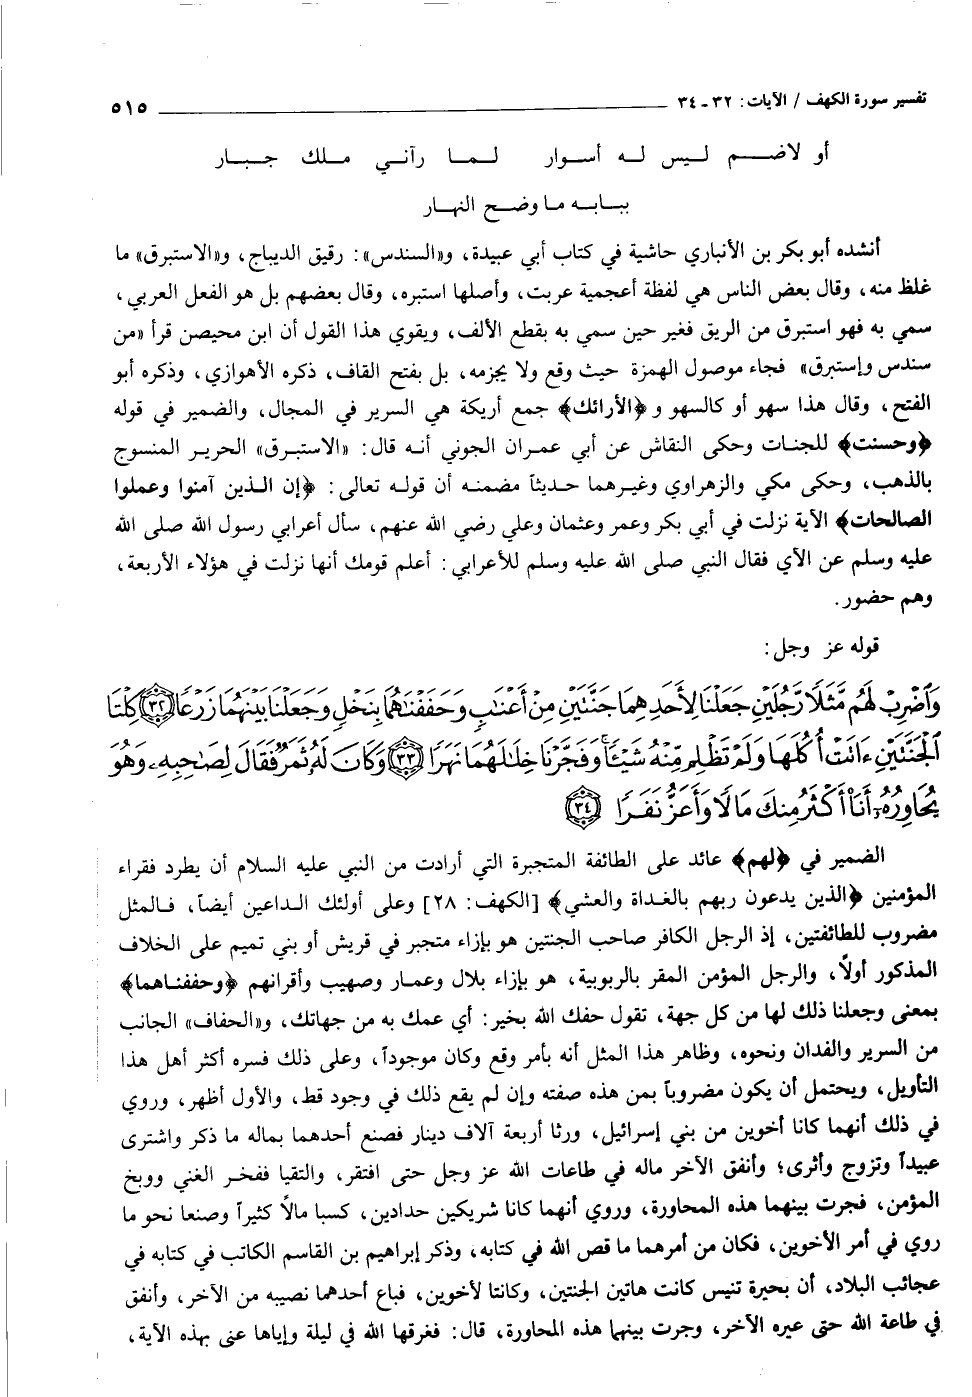 تفسير سورة الكهف / الآيات: ٣٢ - ٣٤ ٥١٥
أو لاضم ليس له أسوار لما رآني ملك جبار
ببابه ما وضح النهار
أنشده أبو بكر بن الأنباري حاشية في كتاب أبي عبيدة، و«السندس»: رقيق الديباج، و«الاستبرق» ما
غلظ منه، وقال بعض الناس هي لفظة أعجمية عربت، وأصلها استبره، وقال بعضهم بل هو الفعل العربي،
سمي به فهو استبرق من الريق فغير حين سمي به بقطع الألف، ويقوي هذا القول أن ابن محيصن قرأ «من
سندس وإستبرق» فجاء موصول الهمزة حيث وقع ولا يجزمه، بل بفتح القاف، ذكره الأهوازي، وذكره أبو
الفتح، وقال هذا سهو أو كالسهو و ﴿الأرائك﴾ جمع أريكة هي السرير في المجال، والضمير في قوله
﴿وحسنت﴾ للجنات وحكى النقاش عن أبي عمران الجوني أنه قال: «الاستبرق» الحرير المنسوج
بالذهب، وحكى مكي والزهراوي وغيرهما حديثاً مضمنه أن قوله تعالى: ﴿إن الذين آمنوا وعملوا
الصالحات﴾ الآية نزلت في أبي بكر وعمر وعثمان وعلي رضي الله عنهم، سأل أعرابي رسول الله صلى الله
عليه وسلم عن الآي فقال النبي صلى الله عليه وسلم للأعرابي: أعلم قومك أنها نزلت في هؤلاء الأربعة،
وهم حضور.
قوله عز وجل:
وَٱضْرِبْ لَهُم مَّثَلًا رَّجُلَيْنِ جَعَلْنَا لِأَحَدِهِمَا جَنَّتَيْنِ مِنْ أَعْنَٰبٍ وَحَفَفْنَٰهُمَا بِنَخْلٍ وَجَعَلْنَا بَيْنَهُمَا زَرْعًا ٣٢ كِلْتَا
ٱلْجَنَّتَيْنِ ءَاتَتْ أُكُلَهَا وَلَمْ تَظْلِم مِّنْهُ شَيْـًٔا وَفَجَّرْنَا خِلَٰلَهُمَا نَهَرًا ٣٣ وَكَانَ لَهُۥ ثَمَرٌ فَقَالَ لِصَٰحِبِهِۦ وَهُوَ
يُحَاوِرُهُۥٓ أَنَا۠ أَكْثَرُ مِنكَ مَالًا وَأَعَزُّ نَفَرًا ٣٤
الضمير في ﴿لهم﴾ عائد على الطائفة المتجبرة التي أرادت من النبي عليه السلام أن يطرد فقراء
المؤمنين ﴿الذين يدعون ربهم بالغداة والعشي﴾ [الكهف: ٢٨] وعلى أولئك الداعين أيضاً، فالمثل
مضروب للطائفتين، إذ الرجل الكافر صاحب الجنتين هو بإزاء متجبر في قريش أو بني تميم على الخلاف
المذكور أولاً، والرجل المؤمن المقر بالربوبية، هو بإزاء بلال وعمار وصهيب وأقرانهم ﴿وحففناهما﴾
بمعنى وجعلنا ذلك لها من كل جهة، تقول حفك الله بخير: أي عمك به من جهاتك، و«الحفاف» الجانب
من السرير والفدان ونحوه، وظاهر هذا المثل أنه بأمر وقع وكان موجوداً، وعلى ذلك فسره أكثر أهل هذا
التأويل، ويحتمل أن يكون مضروباً بمن هذه صفته وإن لم يقع ذلك في وجود قط، والأول أظهر، وروي
في ذلك أنهما كانا أخوين من بني إسرائيل، ورثا أربعة آلاف دينار فصنع أحدهما بماله ما ذكر واشترى
عبيداً وتزوج وأثرى؛ وأنفق الآخر ماله في طاعات الله عز وجل حتى افتقر، والتقيا ففخر الغني ووبخ
المؤمن، فجرت بينهما هذه المحاورة، وروي أنهما كانا شريكين حدادين، كسبا مالاً كثيراً وصنعا نحو ما
روي في أمر الأخوين، فكان من أمرهما ما قص الله في كتابه، وذكر إبراهيم بن القاسم الكاتب في كتابه في
عجائب البلاد، أن بحيرة تنيس كانت هاتين الجنتين، وكانتا لأخوين، فباع أحدهما نصيبه من الآخر، وأنفق
في طاعة الله حتى عيره الآخر، وجرت بينهما هذه المحاورة، قال: فغرقها الله في ليلة وإياها عنى بهذه الآية،